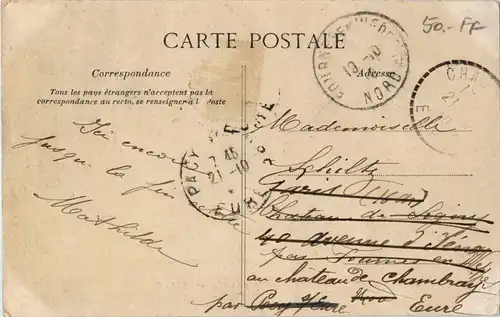 50.- FF
CARTE POSTALE
Correspondance
Tous les pays étrangers n'acceptent pas la
correspondance au recto, se renseigner à la Poste
Adresse
NORD
CHA
PACY
EURE
7 45
21-10
EURE
Ici encore
jusqu'à la fin
Mathilde
Mademoiselle
Schiltz
Paris
Château de
40 avenue d'Iéna
par Fournes en
au château de Chambray
par Pacy s/Eure
Eure